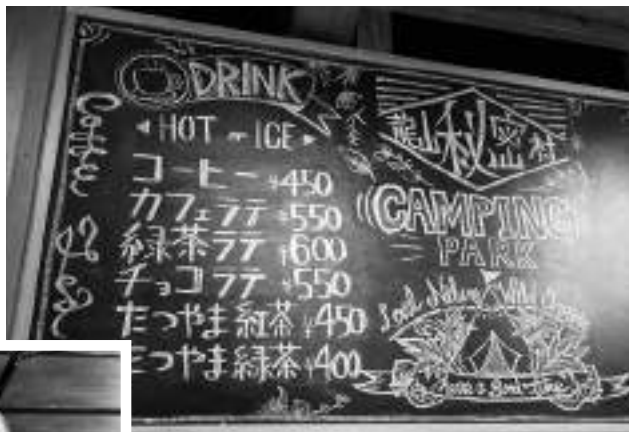 DRINK
HOT ICE
Coffee
コーヒー ¥450
カフェラテ ¥550
緑茶ラテ ¥600
チョコラテ ¥550
たつやま紅茶 ¥450
たつやま緑茶 ¥400
龍山秘密村
CAMPING
PARK